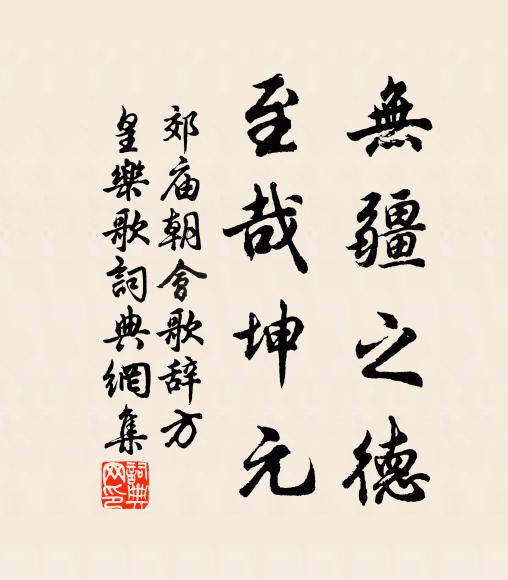 無疆之德
至哉坤元
郊庙朝會歌辞方
皇樂歌詞典網集
詞典网印